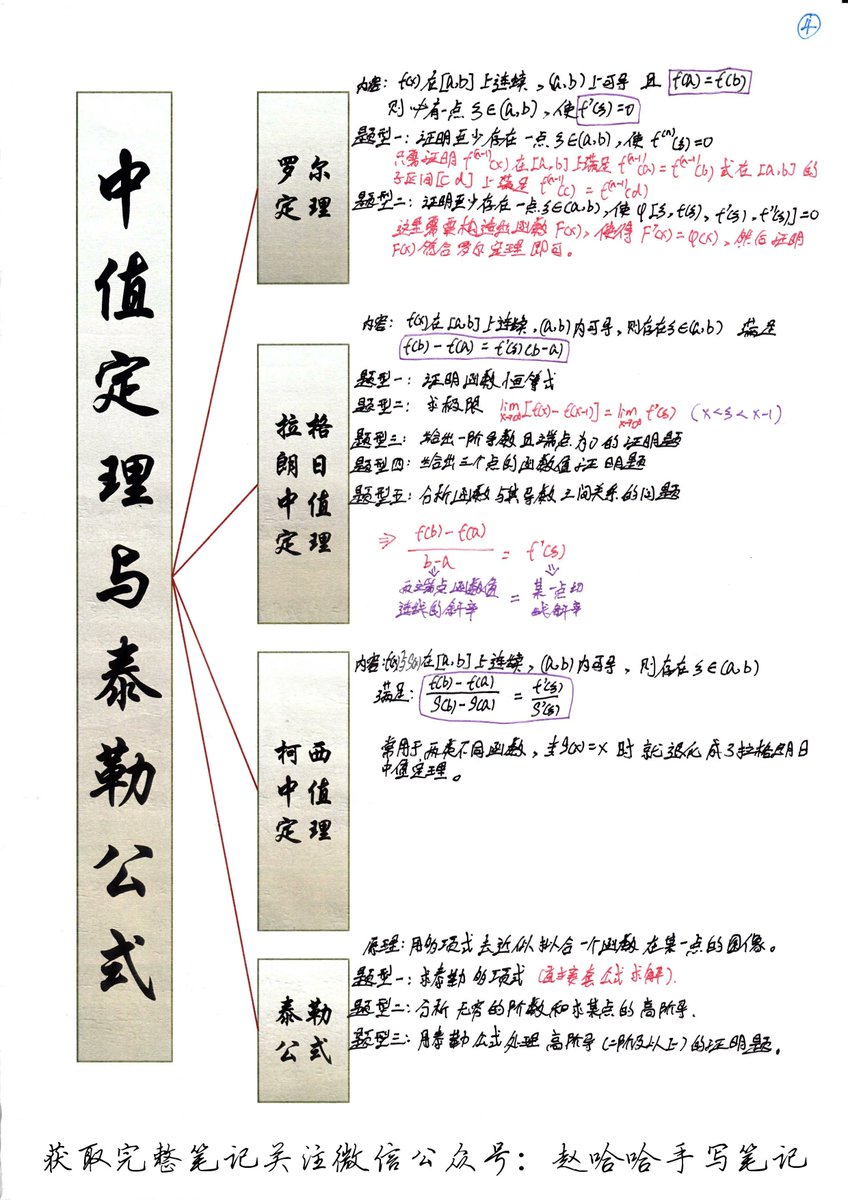 ④
中值定理与泰勒公式
罗尔
定理
内容: f(x)在[a,b]上连续,(a,b)上可导 且 f(a)=f(b)
则 中有一点 ξ∈(a,b),使 f'(ξ)=0
题型一: 证明至少存在一点ξ∈(a,b),使 f⁽ⁿ⁾(ξ)=0
只需证明 f⁽ⁿ⁻¹⁾(x)在[a,b]上满足 f⁽ⁿ⁻¹⁾(a)=f⁽ⁿ⁻¹⁾(b) 或在[a,b]的
子区间[c d]上满足 f⁽ⁿ⁻¹⁾(c) = f⁽ⁿ⁻¹⁾(d)
题型二: 证明至少存在一点ξ∈(a,b),使 φ[ξ, f(ξ), f'(ξ), f'(ξ)]=0
这里需要构造函数 F(x),使得 F'(x)=φ(x),然后证明
F(x)符合罗尔定理即可。
拉格
朗日
中值
定理
内容: f(x)在[a,b]上连续,(a,b)内可导,则存在ξ∈(a,b) 满足
f(b)-f(a) = f'(ξ)(b-a)
题型一: 证明函数恒等式
题型二: 求极限 lim[f(x)-f(x-1)] = lim f'(ξ) (x<ξ<x-1)
题型三: 给出一阶导数且端点为0的证明题
题型四: 给出三个点的函数值证明题
题型五: 分析函数与其导数之间关系的问题
⇒ f(b)-f(a) / b-a = f'(ξ)
两端点函数值 = 某一点切
连线的斜率 线斜率
柯西
中值
定理
内容: f(x)与g(x)在[a,b]上连续,(a,b)内可导,则存在ξ∈(a,b)
满足: f(b)-f(a) / g(b)-g(a) = f'(ξ) / g'(ξ)
常用于两类不同函数,当g(x)=x 时就退化成了拉格朗日
中值定理。
泰勒
公式
原理: 用多项式去近似拟合一个函数在某一点的图像。
题型一: 求泰勒多项式 (直接套公式求解).
题型二: 分析无穷的阶数和求某点的高阶导.
题型三: 用泰勒公式处理高阶导(二阶及以上)的证明题。
获取完整笔记关注微信公众号: 赵哈哈手写笔记